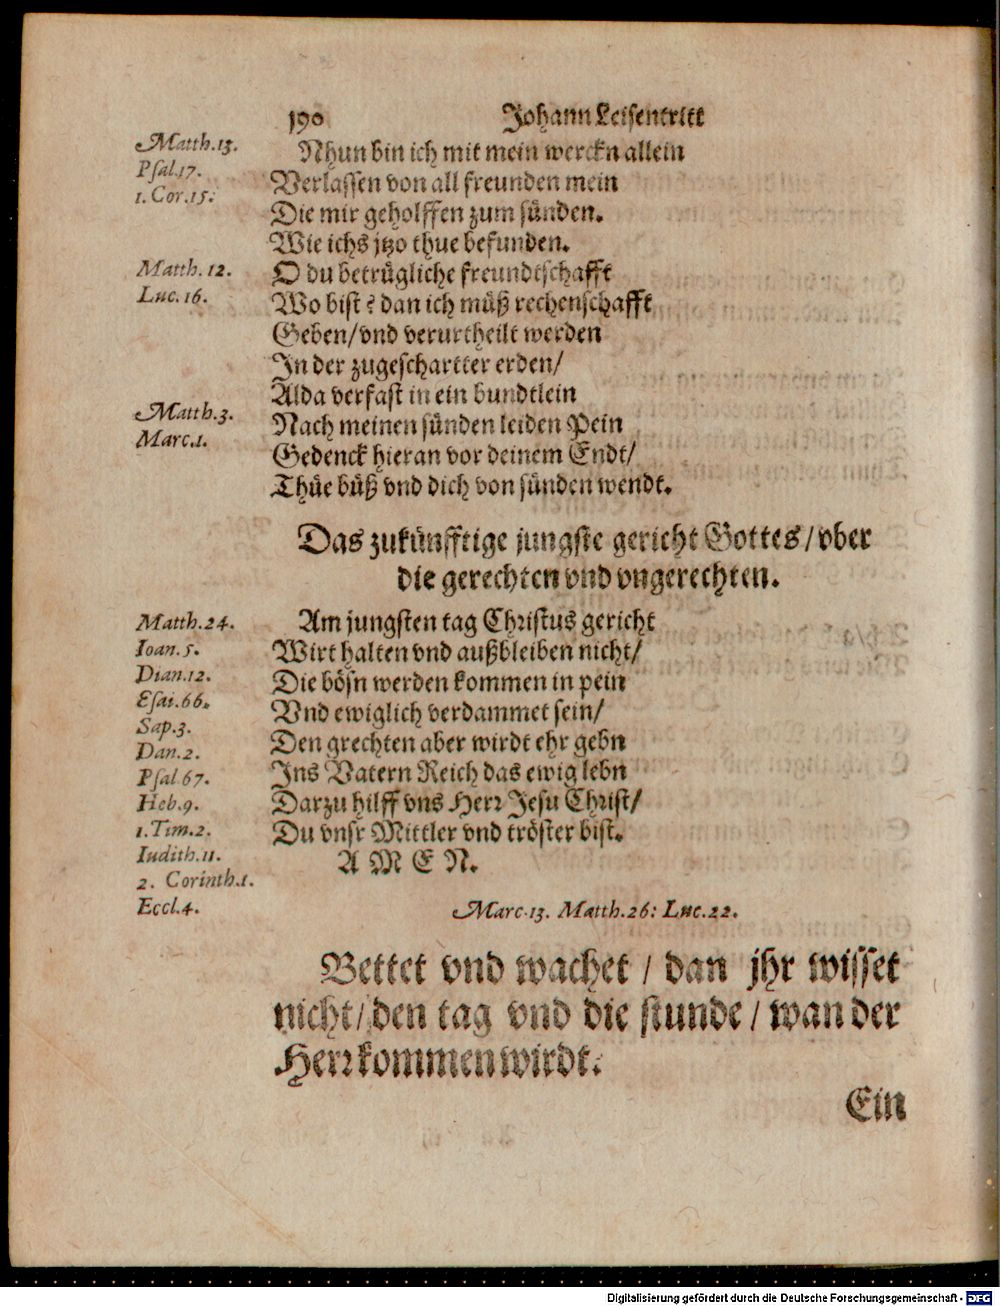 190 Johann Leisentritt
Matth.13.
Psal.17.
1.Cor.15.
Nhun bin ich mit mein werckn allein
Verlassen von all freunden mein
Die mir geholffen zum sünden.
Wie ichs jtzo thue befunden.
Matth.12.
Luc.16.
O du betrügliche freundtschafft
Wo bist? dan ich müß rechenschafft
Geben/vnd verurtheilt werden
In der zugeschartter erden/
Alda verfast in ein bundtlein
Matth.3.
Marc.1.
Nach meinen sünden leiden Pein
Gedenck hieran vor deinem Endt/
Thüe büß vnd dich von sünden wendt.
Das zukünfftige jungste gericht Gottes/vber
die gerechten vnd vngerechten.
Matth.24.
Ioan.5.
Dian.12.
Esai.66.
Sap.3.
Dan.2.
Psal.67.
Heb.9.
1.Tim.2.
Iudith.11.
2. Corinth.1.
Eccl.4.
Am jungsten tag Christus gericht
Wirt halten vnd außbleiben nicht/
Die bösn werden kommen in pein
Vnd ewiglich verdammet sein/
Den grechten aber wirdt ehr gebn
Ins Vatern Reich das ewig lebn
Darzu hilff vns Herr Jesu Christ/
Du vnsr Mittler vnd tröster bist.
A M E N.
Marc.13. Matth.26: Luc.22.
Bettet vnd wachet / dan jhr wisset
nicht/ den tag vnd die stunde / wan der
Herr kommen wirdt.
Ein
Digitalisierung gefördert durch die Deutsche Forschungsgemeinschaft - DFG